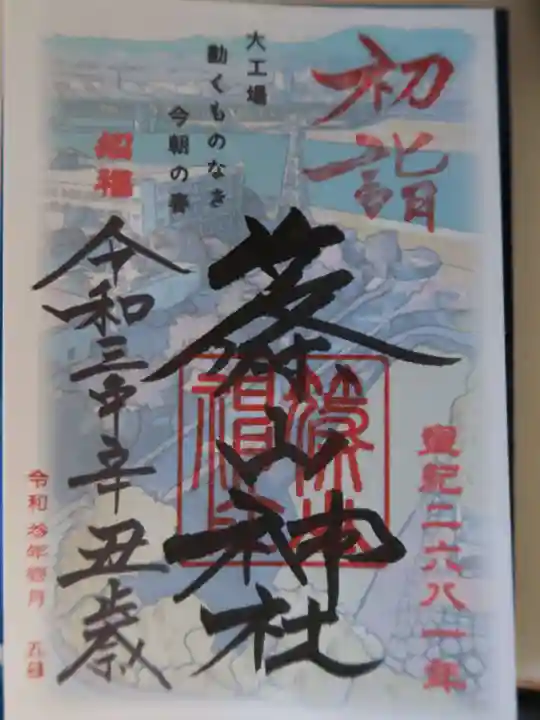 初詣
皇紀二六八一年
大工場
動くものなき
今朝の春
篠山神社
招福
令和三年辛丑歳
令和参年壱月 五日